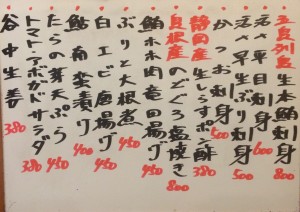 五島列島 生本鮪刺身
活〆平目刺身 600
活〆早生ぶり刺身 500
かつお刺身 500
静岡産 生しらすポン酢 380
島根産 のどぐろ塩焼き 800
鮪ホホ肉竜田揚げ 450
ぶりと大根煮 450
白エビ唐揚げ 450
鮪南蛮漬け 400
たらの芽天ぷら 450
トマトとアボガドサラダ 380
谷中生姜 380